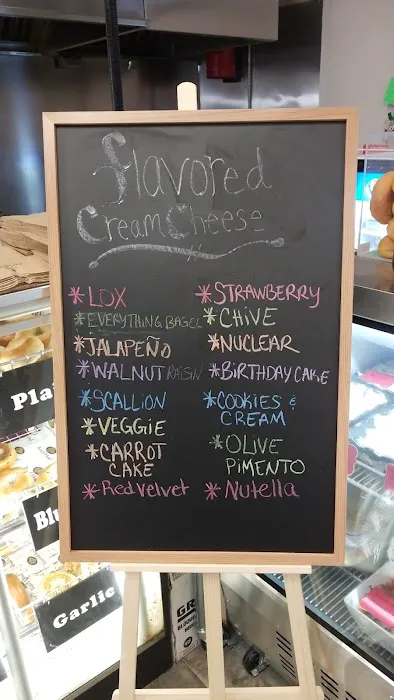 Flavored
Cream Cheese
*LOX
*EVERYTHING BAGEL
*JALAPEÑO
*WALNUT RAISIN
*SCALLION
*VEGGIE
*CARROT
CAKE
*Red Velvet
*STRAWBERRY
*CHIVE
*NUCLEAR
*BIRTHDAY CAKE
*COOKIES &
CREAM
*OLIVE
PIMENTO
*Nutella
Plai
Blu
Garlic
GR